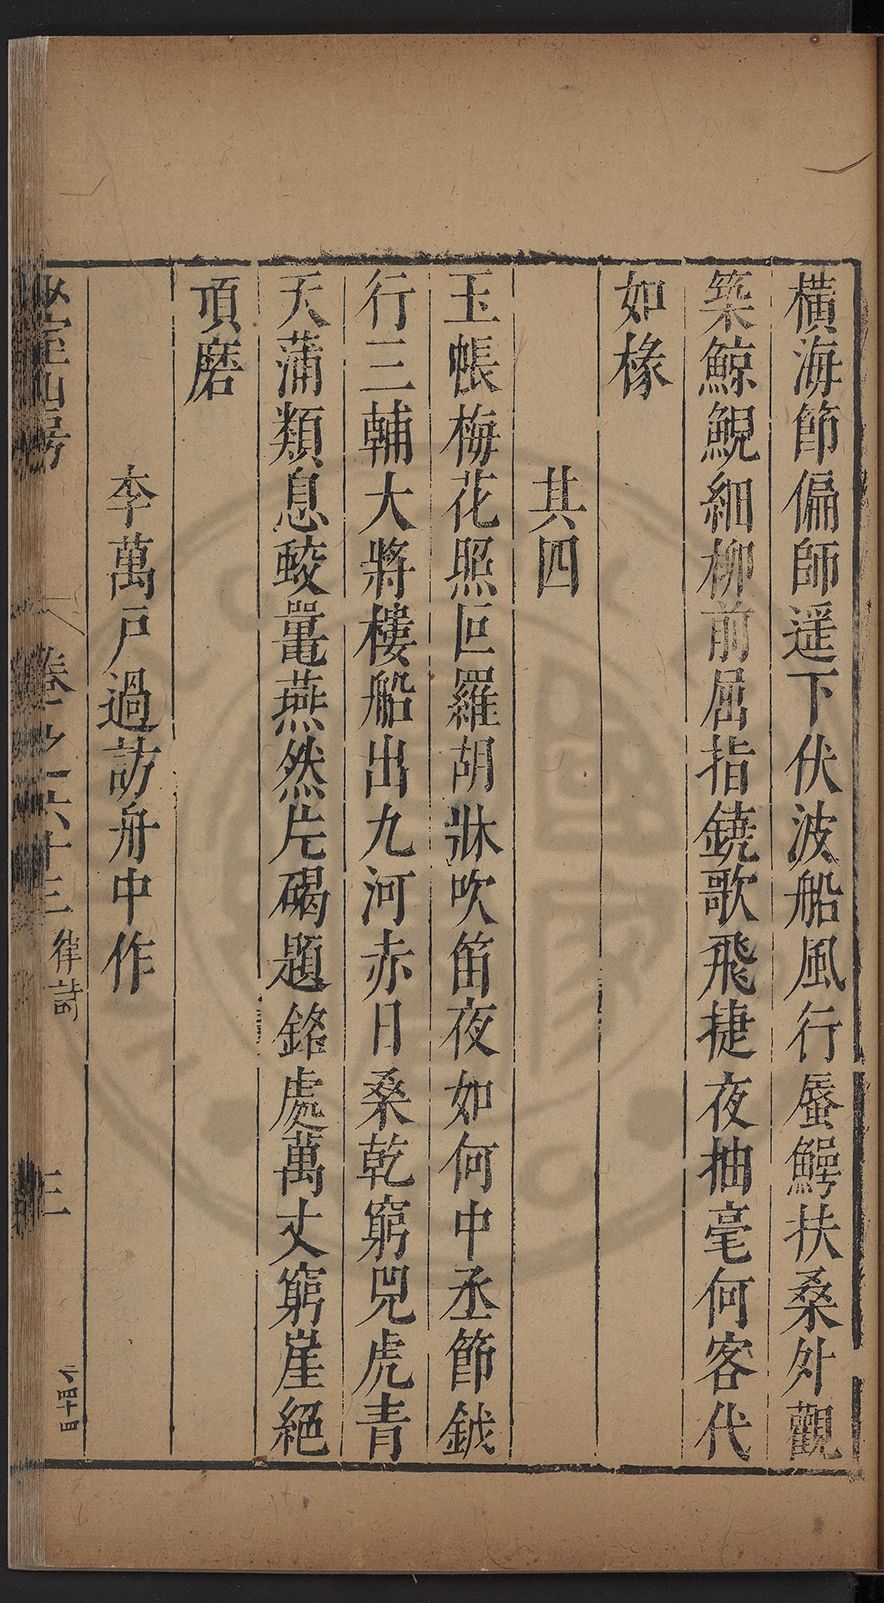 橫海節偏師遥下伏波船風行蜃鰐扶桑外觀
築鯨鯢細柳前屈指鐃歌飛捷夜抽毫何客代
如椽
其四
玉帳梅花照叵羅胡牀吹笛夜如何中丞節鉞
行三輔大將樓船出九河赤日桑乾窮兕虎青
天蒲類息蛟鼉燕然片碣題銘處萬丈窮崖絕
頂磨
李萬戶過訪舟中作
山房
卷之六十三
律詩
三